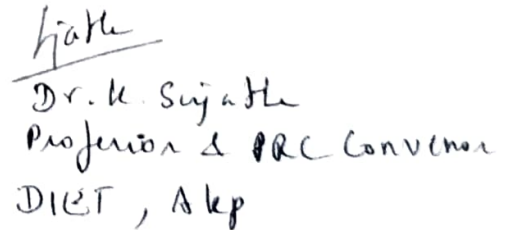 Sujatha
Dr. K. Sujatha
Professor & PRC Convenor
DIET, Akp